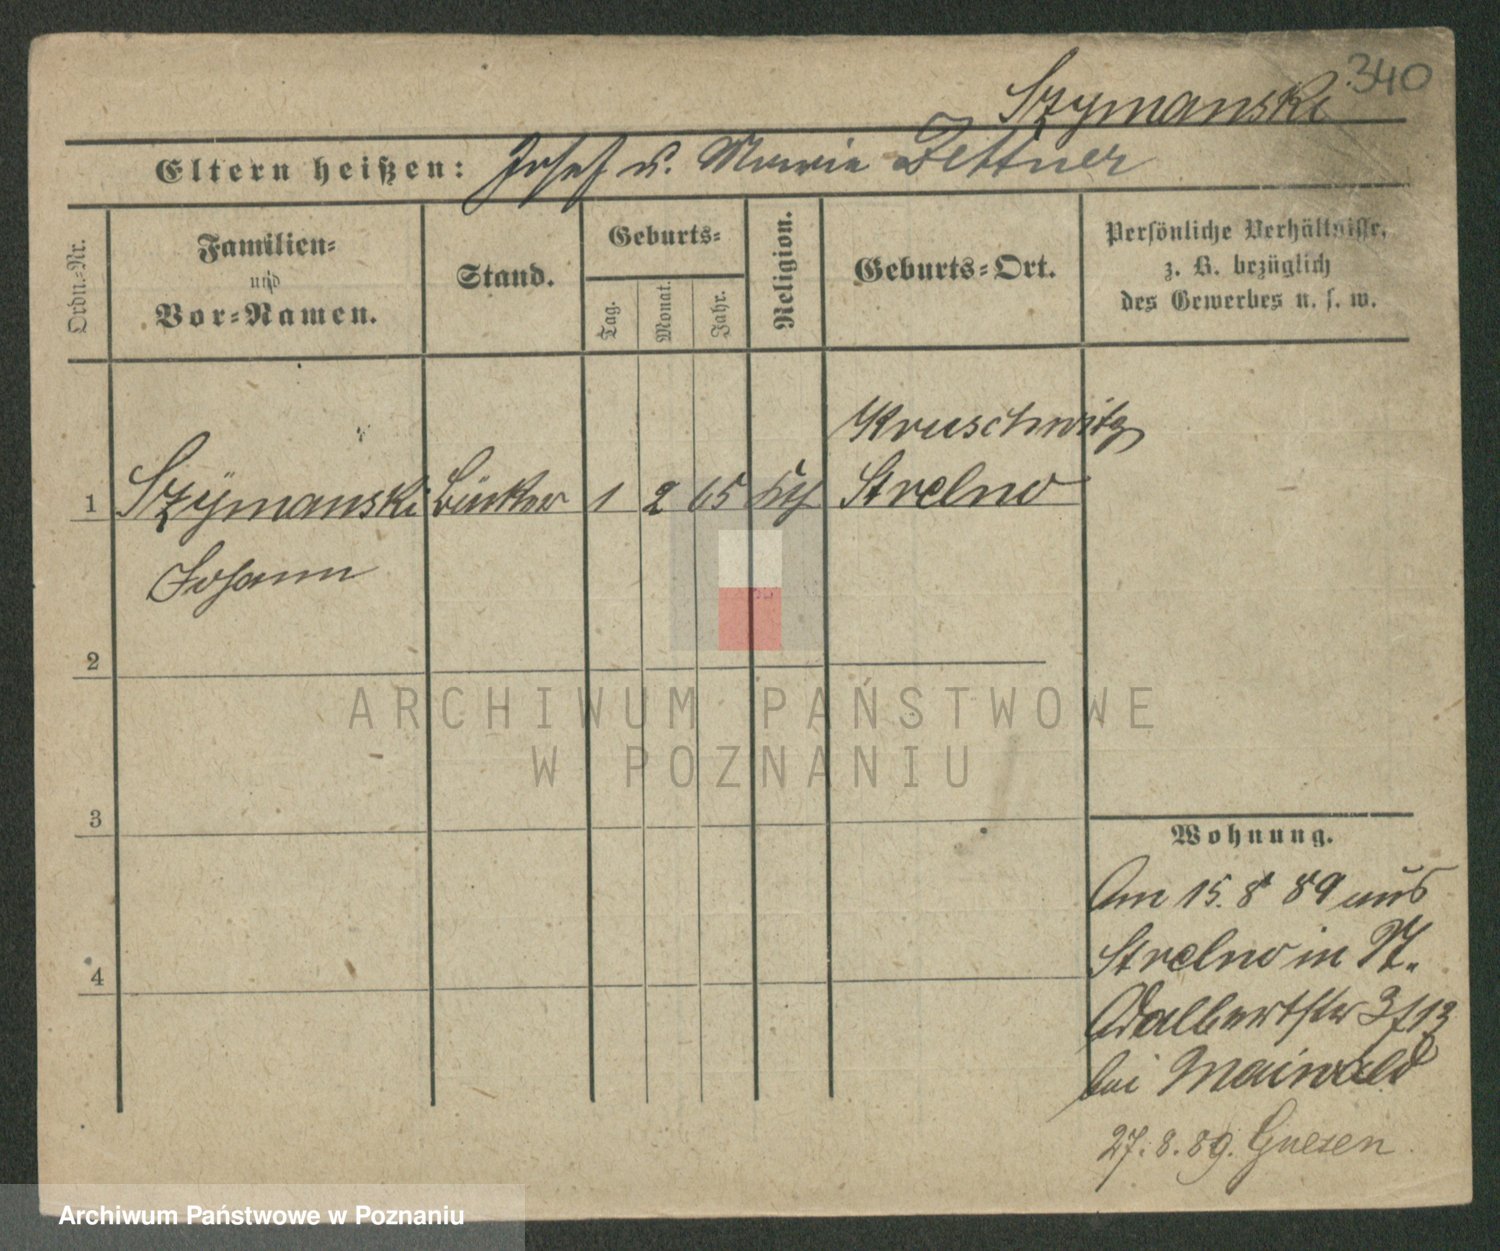 340
Szymanski
Eltern heißen: Josef u. Maria Zettner
Ordn.-Nr.
Familien-
und
Vor-Namen.
Stand.
Geburts-
Tag.
Monat.
Jahr.
Religion.
Geburts-Ort.
Persönliche Verhältnisse,
z. B. bezüglich
des Gewerbes u. s. w.
Kruschwitz
1 Szÿmanski Bäcker 1 2 65 kth Strelno
Johann
2
3
4
Wohnung.
Am 15. 8 89 aus
Strelno in St.
Adalbertstr 3/13
bei Maiwald
27. 8. 89. Gnesen
ARCHIWUM PAŃSTWOWE
W POZNANIU
Archiwum Państwowe w Poznaniu